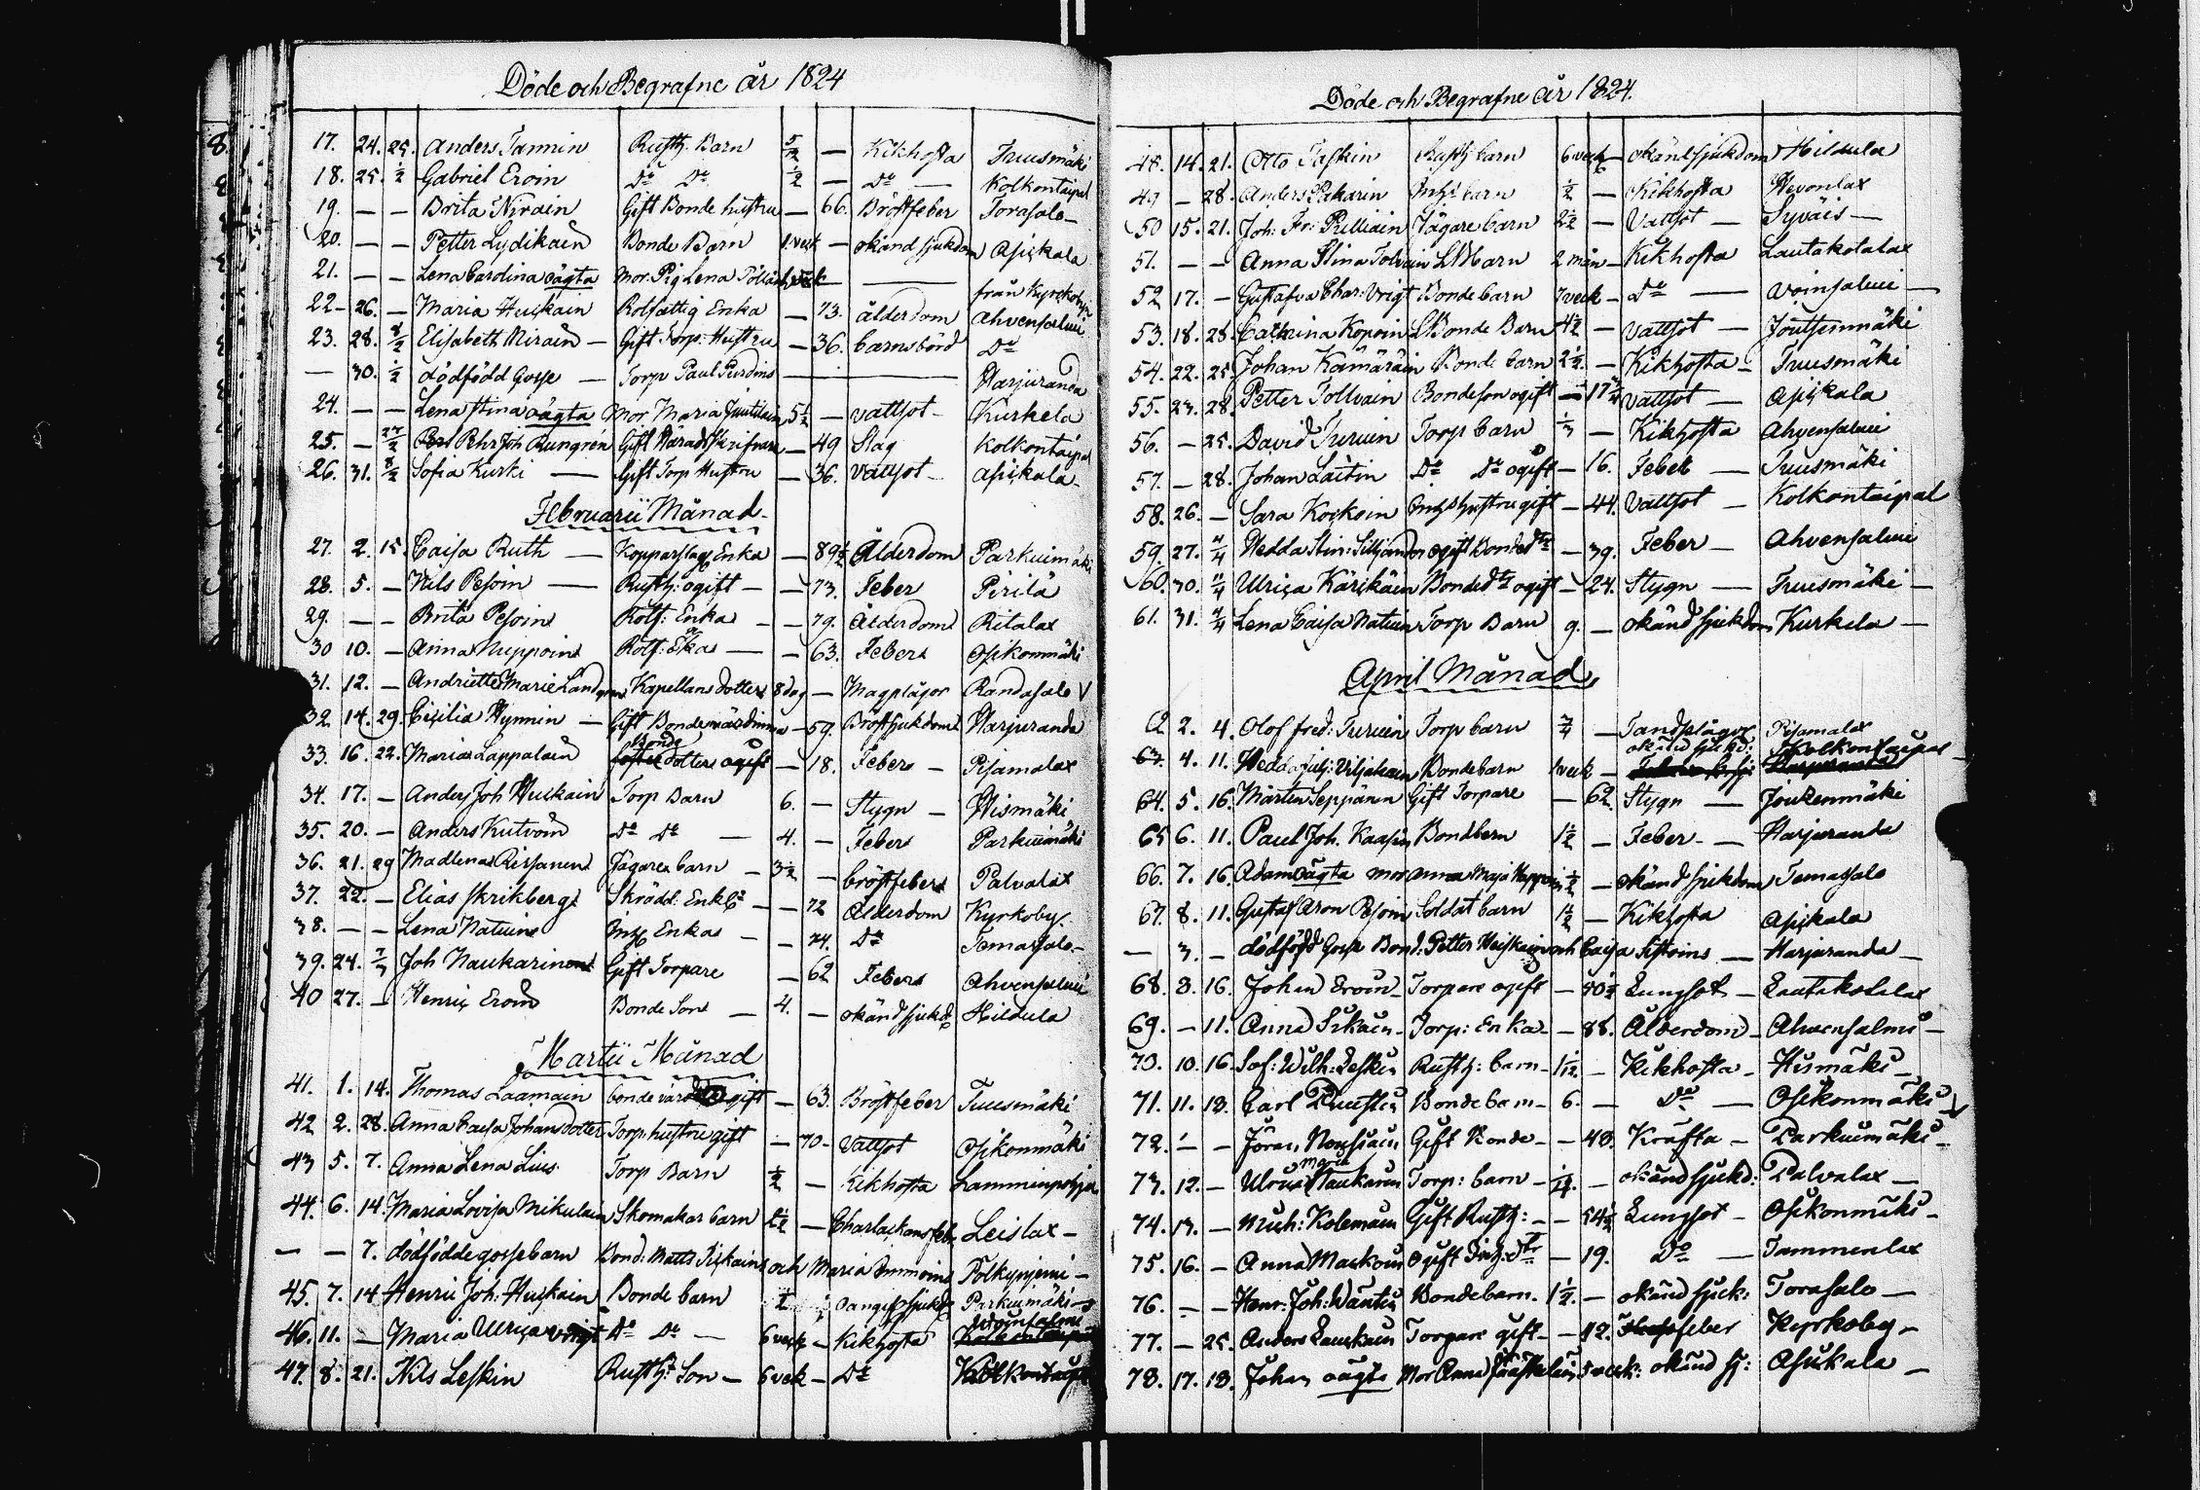 Döde och Begrafne År 1824
17. 24. 25. Anders Tannin Rusth. Barn 5/12 — Kikhosta Tuusmäki
18. 25. 1/2 Gabriel Eroin Do Do 1/2 — Do — Kolkontaipal
19. — — Brita Nirain Gift Bonde hustru — 66. Bröstfeber Torasalo
20. — — Petter Lydikain Bonde Barn 1. veck — okänd sjukdom Asickala
21. — — Lena Carolina oägta Mor. Pig. Lena
från Kyrckoby
22 — 26. — Maria Huskain Rotfattig Enka — 73. ålderdom Ahvensalmi
23. 28. 8/2 Elisabeth Nirain — Gift Torp. Hustru — 36. barnsbörd Do
— 30. 1/2 dödfödd Gosse — Torp Paul Purdins — Harjuranda
24. — — Lena Stina oägta Mor Maria 5 1/2 — vattsot — Kurkela
25. — 27/2 Pehr Joh Rungren Gift Häradsskrifvare — 49 Slag Kolkontaipal
26. 31. 8/2 Sofia Kurki — Gift Torp Hustru — 36. Vattsot — Asickala
Februarii Månad
27. 2. 15 Caisa Ruth — Kopparslag. Enka — 89 1/2 Ålderdom Parkuimäki
28. 5. — Nils Pesoin — Rusth: ogift — 73. Feber Pirilä
29. — — Brita Pesoin Rotf: Enka — 79. Ålderdom Ritalax
30 10. — Anna Nuppoin Rotf: Eka — 63. Feber Osikonmäki
31. 12. — Andriette Marie Kapellans dotter 8 dag — Magplågor Randasalo V
32. 14. 29. Cecilia Hynnin — Gift Bondevärdinna — 59. Bröstsjukdom Harjuranda
33. 16. 22. Maria Lappalain Bonde dotter ogift — 18. Feber — Pisamalax
34. 17. — Anders Joh Huskain Torp Barn 6. — Stygn — Hismäki
35. 20. — Anders Kutvoin Do Do — 4. — Feber Parkuimäki
36. 21. 29 Madlena Rissanen Jägare barn — 3 1/2 — bröstfeber Palvalax
37. 22. — Elias Skrikberg Skrädd. Enkl. — 72 Ålderdom Kyrkoby
38. — — Lena Natuin Inh. Enka — 74. Do Temasalo
39. 24. 7/3 Joh Naukarinen Gift Torpare — 62 Feber Ahvensalmi
40 27. — Henric Eroin Bonde Son — 4. — okänd sjukd Hildula
Martii Månad
41. 1. 14. Thomas Laamain bondevärd gift — 63. Bröstfeber Tuusmäki
42 2. 28. Anna Caisa Johansdotter Torp. hustru gift — 70 — Vattsot Osikonmäki
43 5. 7. Anna Lena Lius Torp Barn 1/2 — Kikhosta Lamminpohja
44. 6. 14. Maria Lovisa Mikulain Skomakar barn 1/2 — Charlackans feb. Leislax —
— — 7. dödfödde gossebarn Bond: Matts och Maria Immoins Polkynjemi —
45. 7. 14 Henric Joh. Huskain Bonde barn oangif. sjukd Parkuimäki
46. 11. — Maria Ulrica Voigt Do Do — 6 veck — Kikhosta Woinsalmi
47. 8. 21. Nils Leskin Rusth. Son — 6 vek — Do Kolkontaipal
Döde och Begrafne År 1824.
48. 14. 21. Otto Taskin Rusth barn 6 veck — okänd sjukdom Hildula
49 — 28. Anders Pakarin Inh. barn 1/2 — Kikhosta Hevonlax
50 15. 21. Joh: Fr: Pulliain Jägare barn 2 1/2 — Vattsot — Syväis —
51. — — Anna Stina Tolvain barn 2 mån — Kikhosta Lautakotalax
52 17. — Gustafva Char: Voigt Bonde barn 7 veck — Do — Woinsalmi —
53. 18. 28. Cathrina Kopoin Bonde Barn 4 1/2 — Vattsot — Joutsenmäki
54. 22. 25. Johan Kämäräin Bonde barn 2 1/2 — Kikhosta — Tuusmäki
55. 23. 28. Petter Tolvain Bondeson ogift — 17 Vattsot — Asickala
56. — 25. David Turuin Torp barn 1/3 — Kikhosta Ahvensalmi
57. — 28. Johan Laitin Do Do ogift — 16. Feber — Tuusmäki
58. 26. — Sara Kockoin Inhs hustru gift — 44. Vattsot — Kolkontaipal
59. 27. 4/4 Hedda Stin: Silljander ogift Bonded — 39. Feber — Ahvensalmi
60. 30. 4/4 Ulrica Kärckäin Bonded ogift — 24. Stygn — Tuusmäki —
61. 31. 4/4 Lena Caisa Natuin Torp Barn 9. — okänd sjukdom Kurkela —
April Månad
62 2. 4. Olof Fred: Turuin Torp barn 3/4 — Tandplågor Pisamalax
63. 4. 11. Hedda Julj: Viljakain Bondebarn 1 veck — okänd sjukd: Kolkontaipal
64. 5. 16. Mårten Seppänen Gift Torpare — 62. Stygn — Joutzenmäki
65 6. 11. Paul Joh. Kaasin Bondbarn 1 1/2 — Feber — Harjuranda
66. 7. 16. Adam oägta mor Anna Maja 1/2 — okänd sjukdom Temasalo
67. 8. 11. Gustaf Aron Pesoin Soldat barn 1/2 — Kikhosta Asickala
— 3. — dödfödd Gosse Bond. Petter Heiskain och Caisa — Harjuranda —
68. 8. 16. Johan Eroin — Torpare ogift — 30 1/2 Lungsot — Lautakotalax
69. — 11. Anna Sikain — Torp: Enka — 88. Ålderdom — Ahvensalmi —
70. 10. 16. Sof: Wilh: Leskin Rusth: barn — 1/12 — Kikhosta — Hismäki —
71. 11. 18. Carl Puustin Bonde barn — 6. — Do — Osikonmäki
72. — — Jöran Nousiain Gift Bonde — 48. Kräfta — Parkuimäki —
73. 12. — Ulrica Maria Naukarin Torp: barn — — okänd sjukd: Palvalax —
74. 13. — Mich: Kolemain Gift Rusth: — 54 1/2 Lungsot — Osikonmäki —
75. 16. — Anna Mackoin ogift Inh: dtr — 19. Do — Tammenlax
76. — — Henr: Joh: Wäntin Bondebarn. 1 1/2. — okänd sjuk: Torasalo —
77. — 25. Anders Lauckain Torpare gift — 42. feber Kyrkoby —
78. 17. 18. Johan oägta Mor Anna 5 veck: okänd sj: Asickala —